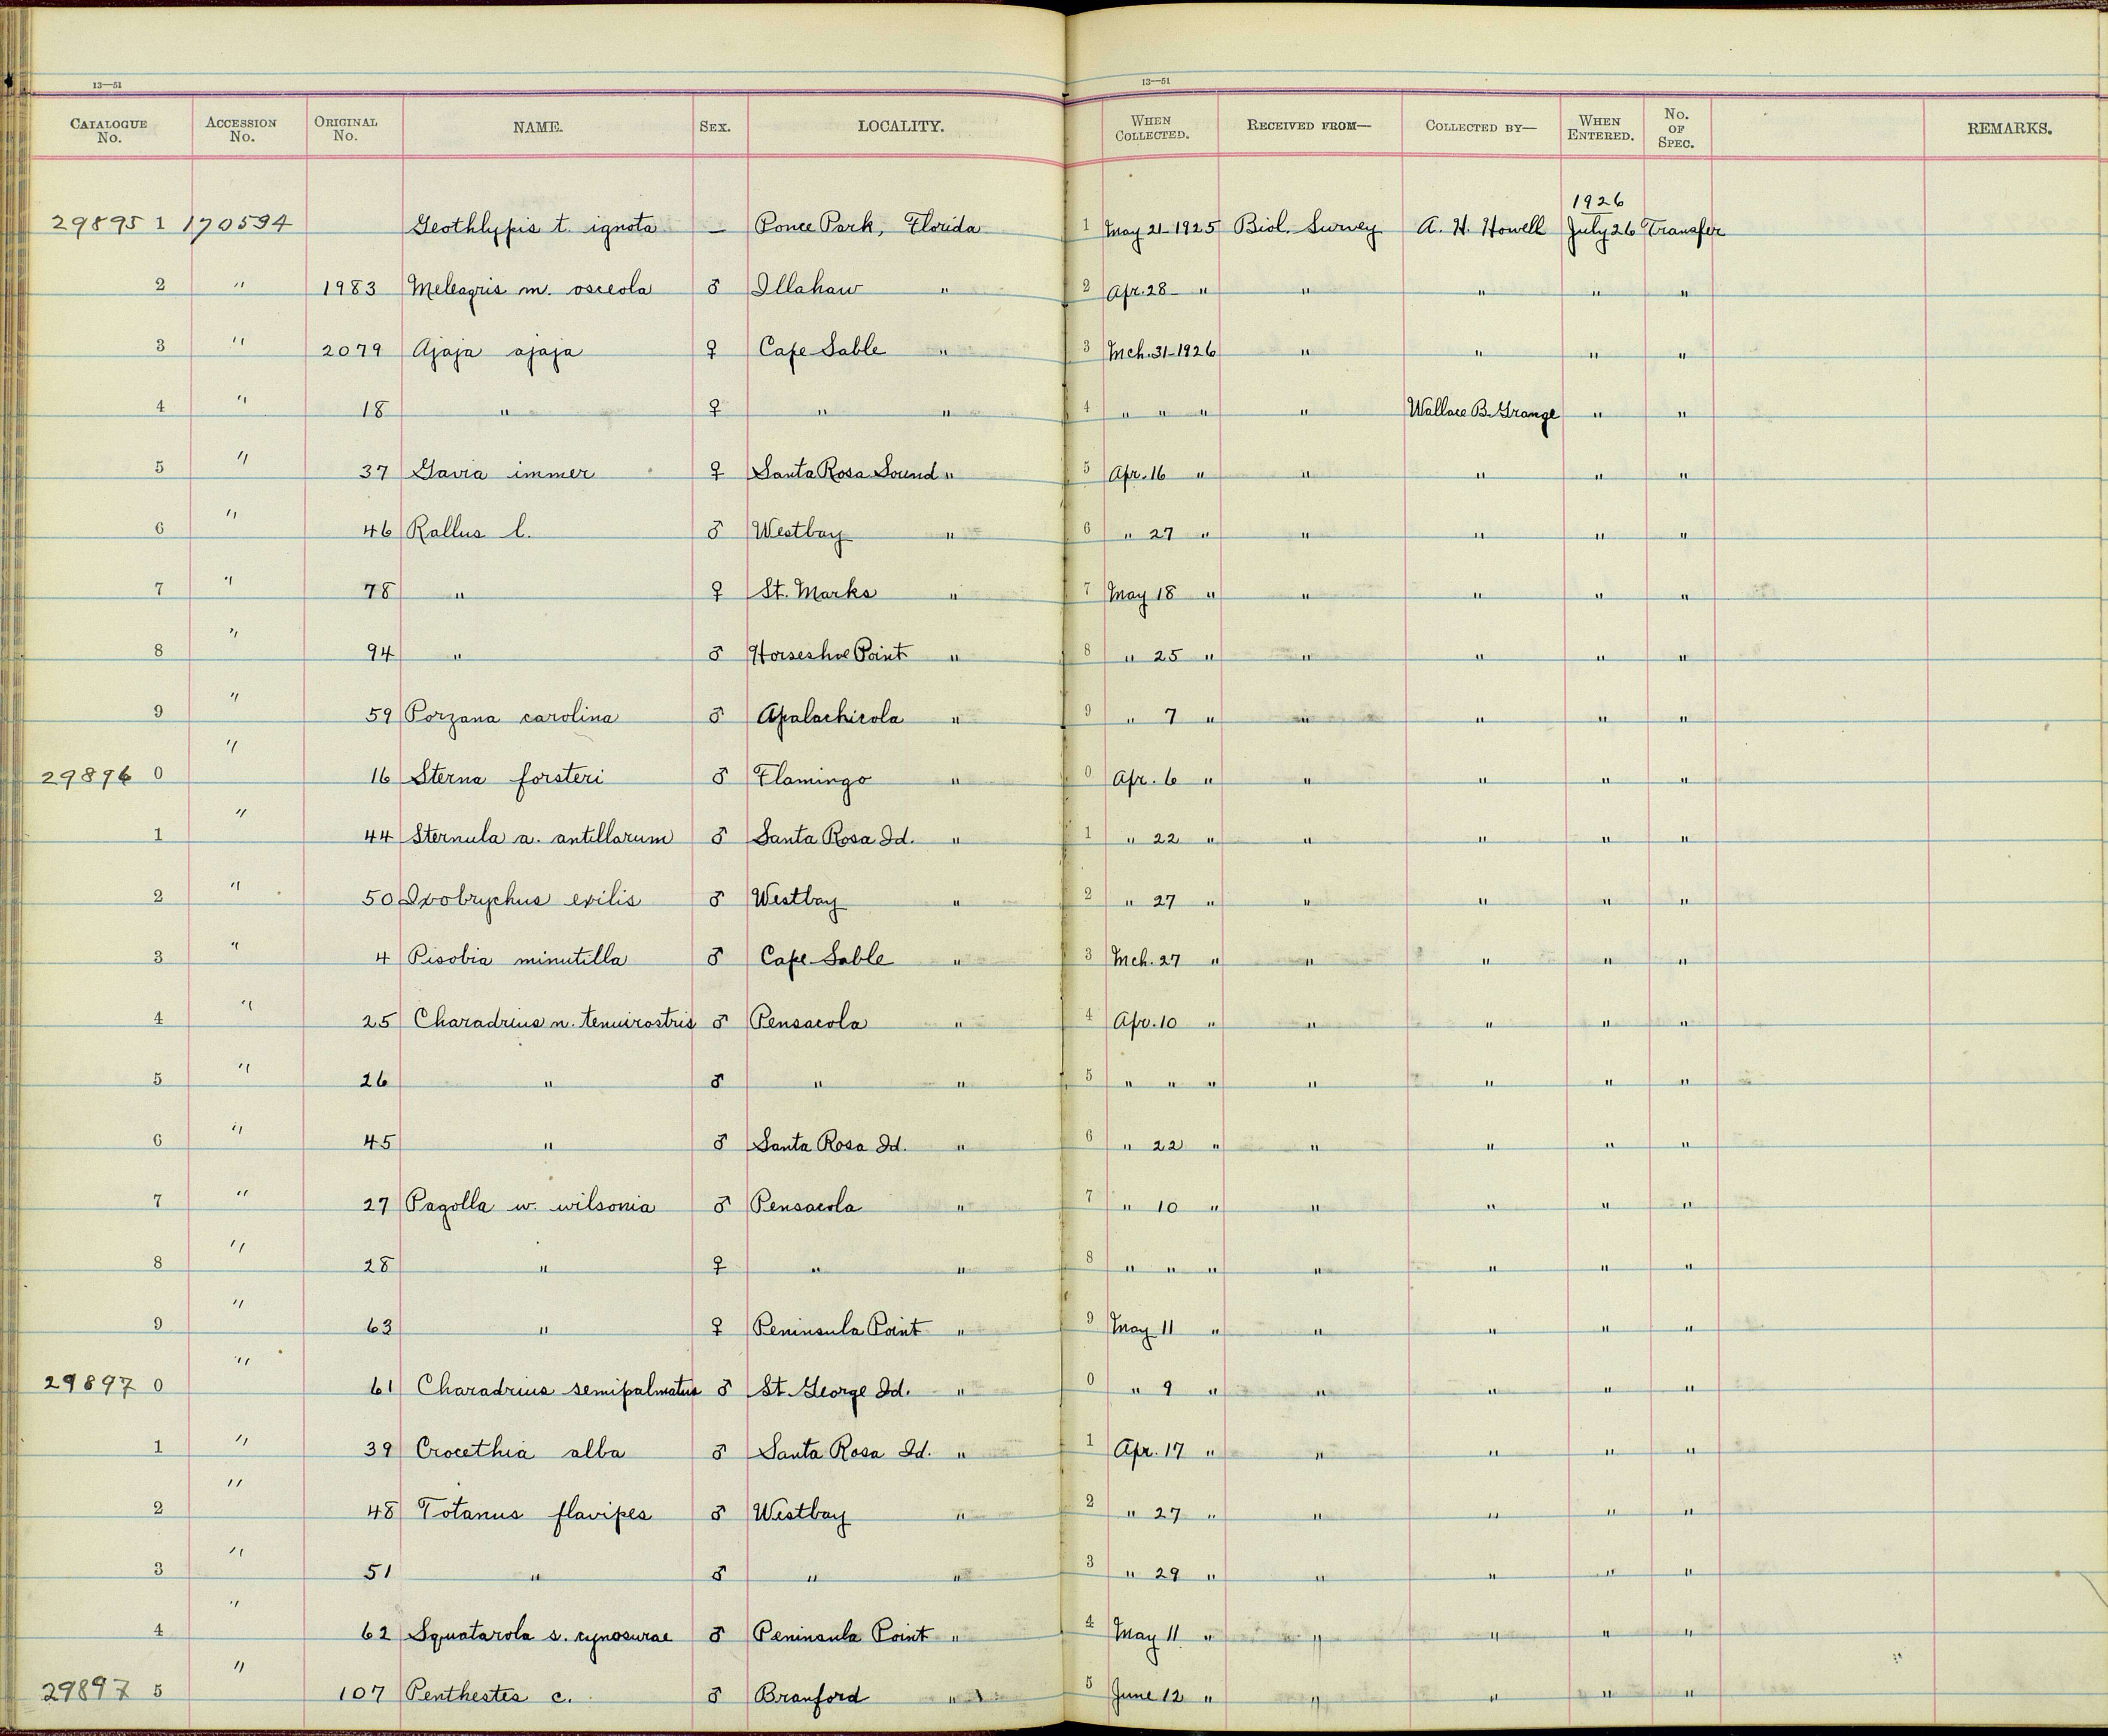 13—51 13—51
CATALOGUE No. ACCESSION No. ORIGINAL No. NAME. SEX. LOCALITY. WHEN COLLECTED. RECEIVED FROM— COLLECTED BY— WHEN ENTERED. No. OF SPEC. REMARKS.
1926
29895 1 170594 Geothlypis t. ignota — Ponce Park, Florida 1 May 21-1925 Biol. Survey A. H. Howell July 26 Transfer
2 " 1983 Meleagris m. osceola ♂ Illahaw " 2 Apr. 28 - " " " " "
3 " 2079 Ajaja ajaja ♀ Cape Sable " 3 Mch. 31-1926 " " " "
4 " 18 " ♀ " " 4 " " " " Wallace B. Grange " "
5 " 37 Gavia immer ♀ Santa Rosa Sound " 5 Apr. 16 " " " " "
6 " 46 Rallus l. ♂ Westbay " 6 " 27 " " " " "
7 " 78 " ♀ St. Marks " 7 May 18 " " " " "
8 " 94 " ♂ Horseshoe Point " 8 " 25 " " " " "
9 " 59 Porzana carolina ♂ Apalachicola " 9 " 7 " " " " "
29896 0 " 16 Sterna forsteri ♂ Flamingo " 0 Apr. 6 " " " " "
1 " 44 Sternula a. antillarum ♂ Santa Rosa Id. " 1 " 22 " " " " "
2 " 50 Ixobrychus exilis ♂ Westbay " 2 " 27 " " " " "
3 " 4 Pisobia minutilla ♂ Cape Sable " 3 Mch. 27 " " " " "
4 " 25 Charadrius n. tenuirostris ♂ Pensacola " 4 Apr. 10 " " " " "
5 " 26 " ♂ " " 5 " " " " " " "
6 " 45 " ♂ Santa Rosa Id. " 6 " 22 " " " " "
7 " 27 Pagolla w. wilsonia ♂ Pensacola " 7 " 10 " " " " "
8 " 28 " ♀ " " 8 " " " " " " "
9 " 63 " ♀ Peninsula Point " 9 May 11 " " " " "
29897 0 " 61 Charadrius semipalmatus ♂ St. George Id. " 0 " 9 " " " " "
1 " 39 Crocethia alba ♂ Santa Rosa Id. " 1 Apr. 17 " " " " "
2 " 48 Totanus flavipes ♂ Westbay " 2 " 27 " " " " "
3 " 51 " ♂ " " 3 " 29 " " " " "
4 " 62 Squatarola s. cynosurae ♂ Peninsula Point " 4 May 11 " " " " "
29897 5 " 107 Penthestes c. ♂ Branford " 5 June 12 " " " " "